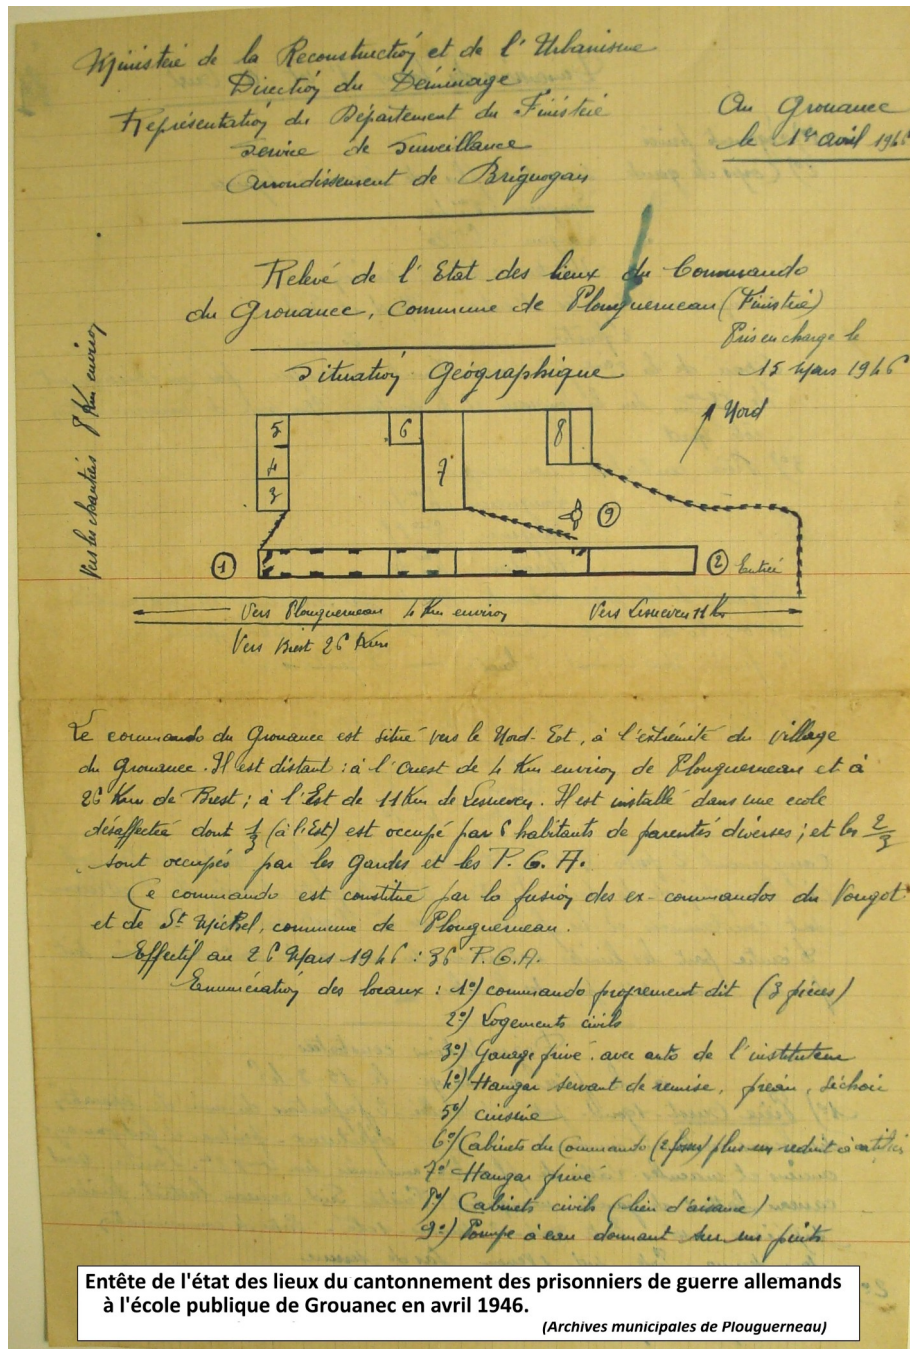 Ministère de la Reconstruction et de l'Urbanisme
Direction du Déminage
Représentation du Département du Finistère
Service de Surveillance
Arrondissement de Brignogan
Au Grouanec
le 1er avril 1946
Relevé de l'Etat des lieux du Commando
du Grouanec, commune de Plouguerneau (Finistère)
Pris en charge le
15 Mars 1946
Situation Géographique
Vers les chantiers 8 Km environ
Nord
5
4
3
6
7
8
9
1
2 Entrée
Vers Plouguerneau 4 Km environ
Vers Lesneven 11 Km
Vers Brest 26 Km
Le commando du Grouanec est situé vers le Nord-Est, à l'extrémité du village
du Grouanec. Il est distant : à l'Ouest de 4 Km environ de Plouguerneau et à
26 Km de Brest ; à l'Est de 11 Km de Lesneven. Il est installé dans une ecole
désaffectée dont 1/3 (à l'Est) est occupé par 6 habitants de parentés diverses ; et les 2/3
sont occupés par les gardes et les P.G.A.
Ce commando est constitué par la fusion des ex-commandos du Vougot
et de St Michel, commune de Plouguerneau.
Effectif au 26 Mars 1946 : 36 P.G.A.
Enumération des locaux : 1º) commando proprement dit (3 pièces)
2º) Logements civils
3º) Garage privé avec auto de l'instituteur
4º) Hangar servant de remise, préau, séchoir
5º) cuisine
6º) Cabinets du Commando (2 fosses) plus un reduit à
7º Hangar privé
8º) Cabinets civils (lieu d'aisance)
9º) Pompe à eau donnant sur un puits
Entête de l'état des lieux du cantonnement des prisonniers de guerre allemands
à l'école publique de Grouanec en avril 1946.
(Archives municipales de Plouguerneau)